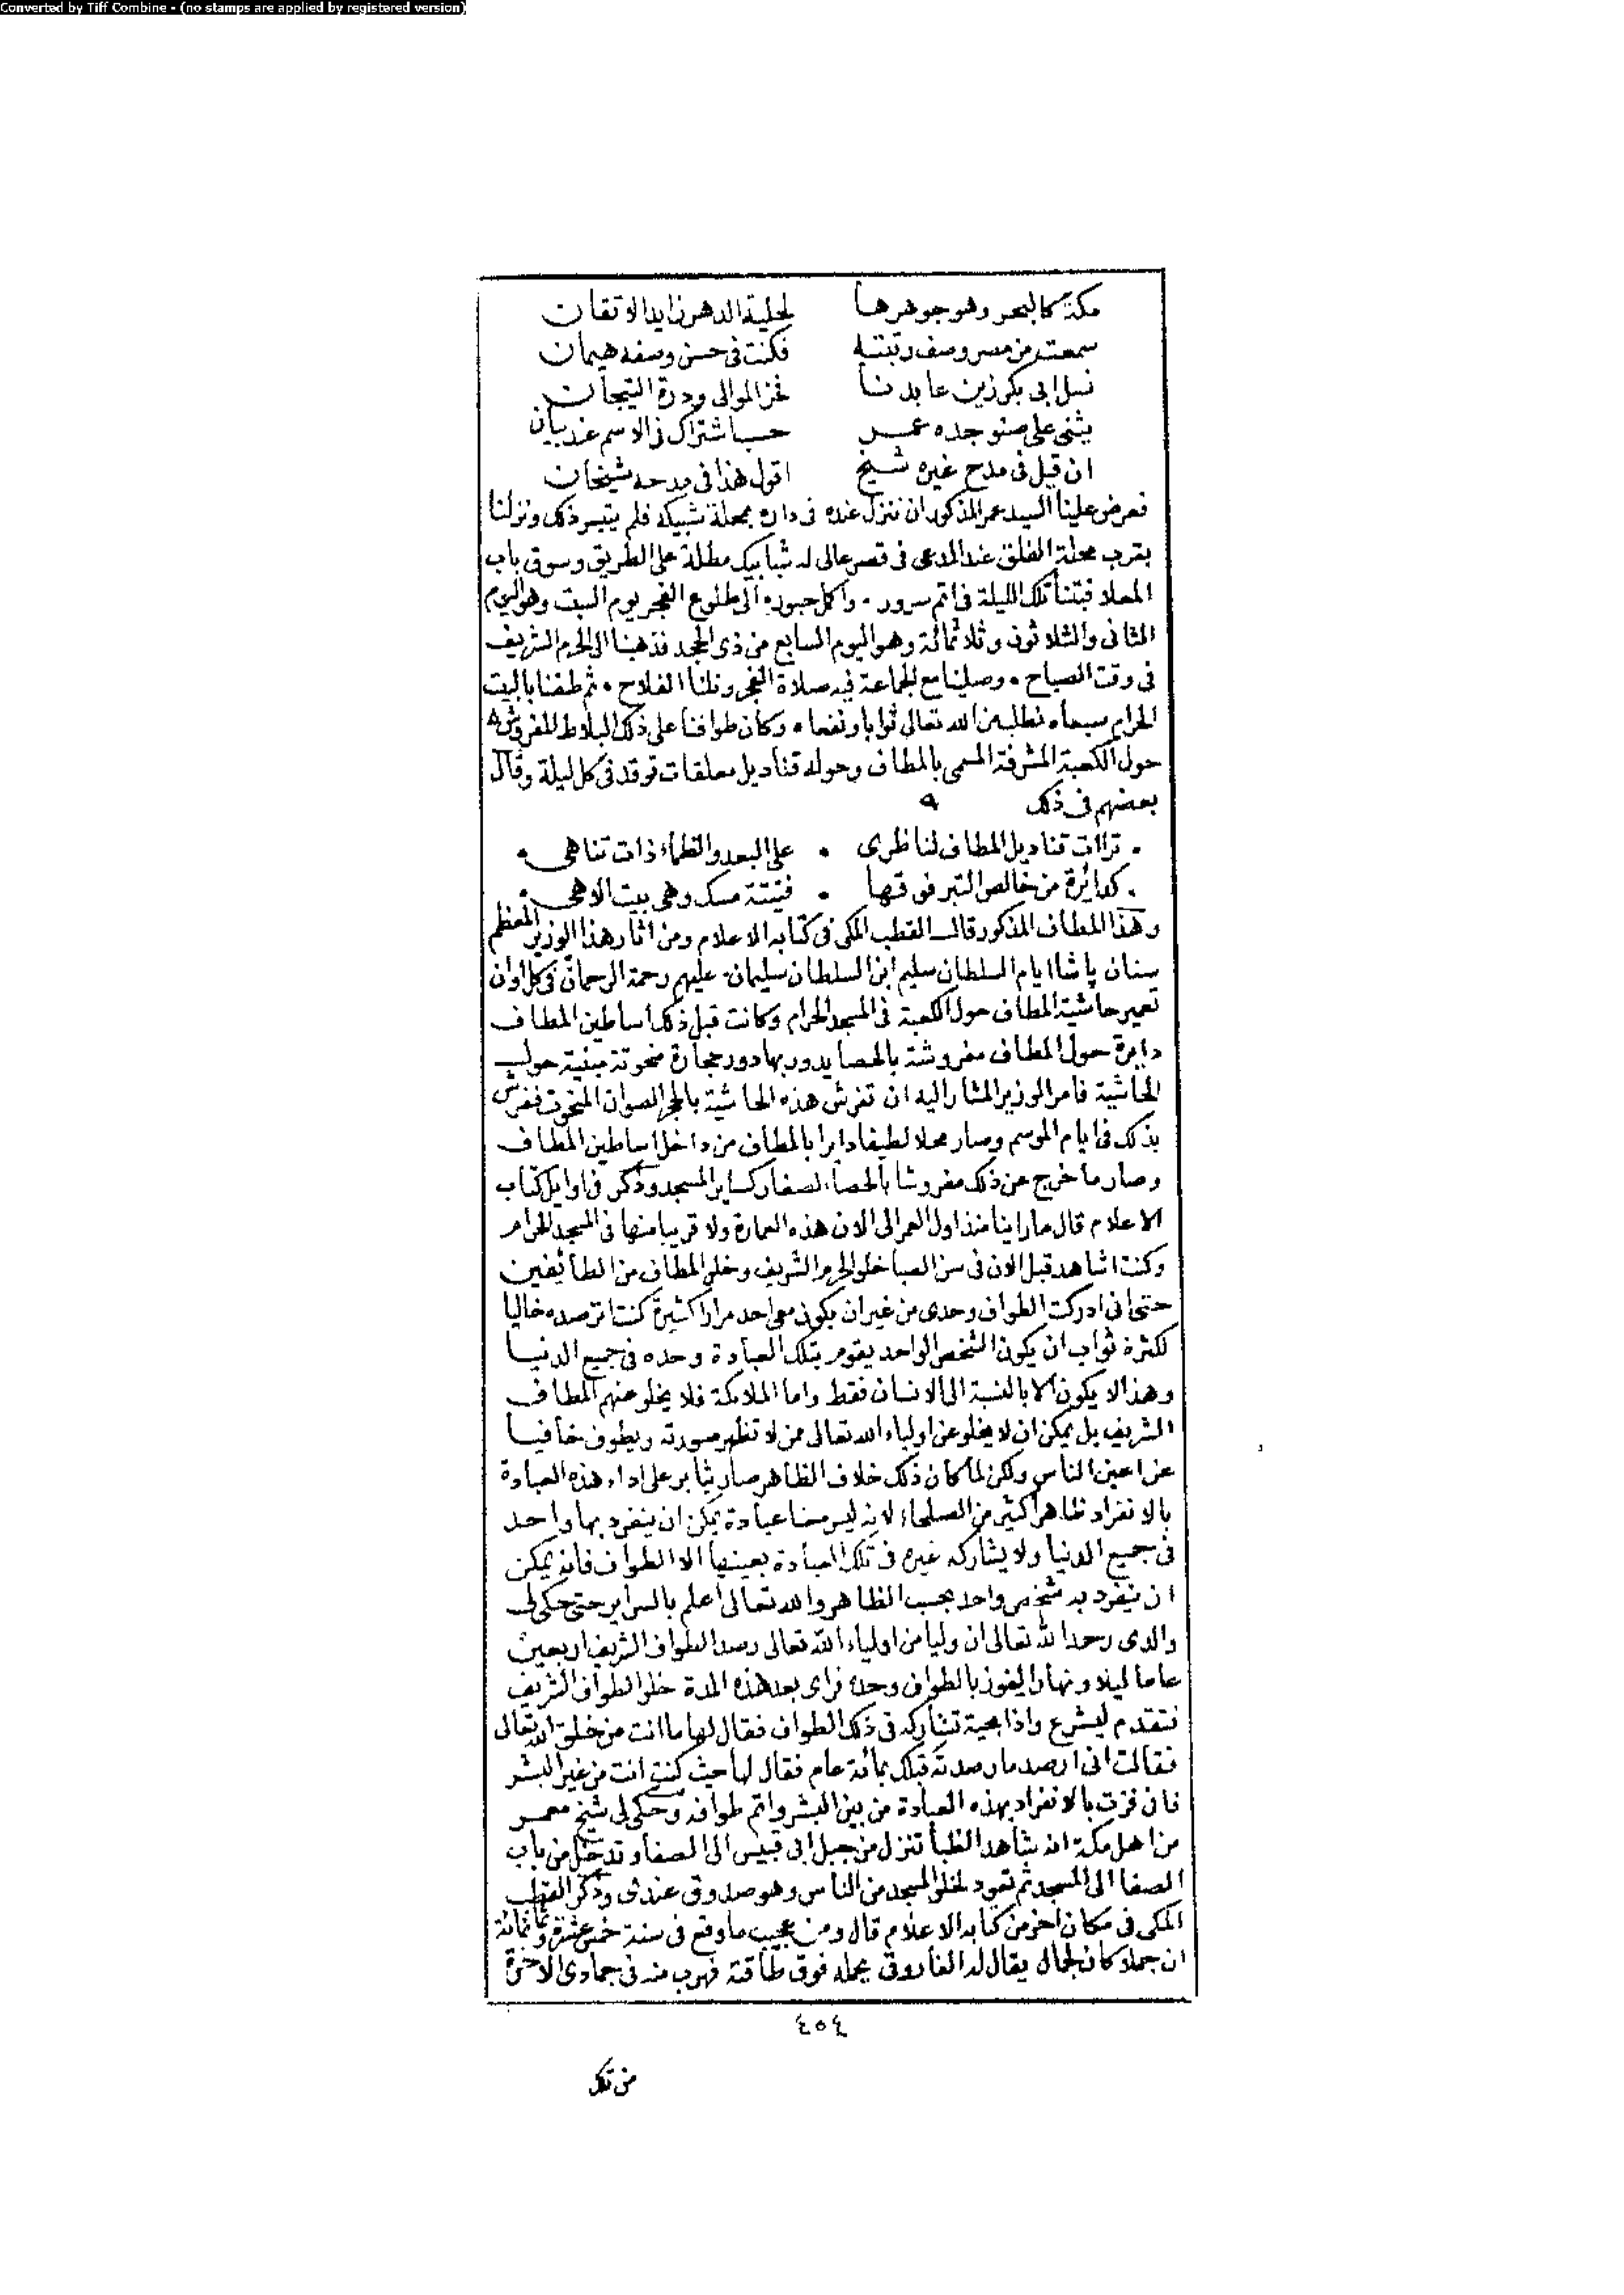 Converted by Tiff Combine - (no stamps are applied by registered version)
مكة كالبحر وهو جوهرها لحلية الدهر زايد الاتقان
سمعت من مصر وصف رتبته فكنت فى حسن وصفه هيمان
نسل ابى بكر زين عابدنا فخر الموالى ودرة التيجان
يثنى على صنو جده عمر حسبا شتراك فى الاسم عند بيان
ان قيل فى مدح غيره شيخ اقول هذا فى مدحه شيخان
فعرض علينا السيد عمر المذكور ان ننزل عنده فى داره بمحلة شبيكه فلم يتيسر ذلك ونزلنا
بقرب محلة الفلق عند المدعى فى قصر عالى له شبابيك مطلة على الطريق وسوق باب
المعلا فبتنا تلك الليلة فى اتم سرور . واكل حبور. الى طلوع الفجر يوم السبت وهو اليوم
الثانى والثلاثون وثلاثمائة وهو اليوم السابع من ذى الحجه فذهبنا الى الحرم الشريف
فى وقت الصباح . وصلينا مع الجماعة فيه صلاة الفجر ونلنا الفلاح . ثم طفنا بالبيت
الحرام سبعا. نطلب من الله تعالى ثوابا ونفعا . وكان طوافنا على ذلك البلاط المفروش
حول الكعبة المشرفة المسمى بالمطاف وحوله قناديل معلقات توقد فى كل ليلة وقال
بعضهم فى ذلك
. تراات قناديل المطاف لناظرى . على البعد والظلماء ذات تناهى .
. كدائرة من خالص التبر فوقها . فتيتة مسك وهى بيت الاهى .
وهذا المطاف المذكور قال القطب المكى فى كتابه الاعلام ومن اثار هذا الوزير المعظم
سنان پاشا ايام السلطان سليم ابن السلطان سليمان. عليهم رحمة الرحمان فى كل اوان
تعمير حاشية المطاف حول الكعبة فى المسجد الحرام وكانت قبل ذلك اساطين المطاف
دايرة حول المطاف مفروشة بالحصا يدور بها دور حجارة منحوتة مبنية حول
الحاشية فامر الوزير المشار اليه ان تفرش هذه الحاشية بالحجر الصوان المنحوت ففرش
بذلك فى ايام الموسم وصار محلا لطيفا دايرا بالمطاف من داخل اساطين المطاف
وصار ما خرج عن ذلك مفروشا بالحصاء الصغار كساير المسجد وذكر فى اوايل كتاب
الاعلام قال ما راينا منذ اول العمر الى الان هذه العمارة ولا قريبا منها فى المسجد الحرام
وكنت اشاهد قبل الان فى سن الصبا خلو الحرم الشريف وخلو المطاف من الطائفين
حتى انى ادركت الطواف وحدى من غير ان يكون معى احد مرارا كثيرة كنت اترصده خاليا
لكثرة ثواب ان يكون الشخص الواحد يقوم بتلك العبادة وحده فى جميع الدنيا
وهذا لا يكون الا بالنسبة الى الانسان فقط واما الملايكة فلا يخلو عنهم المطاف
الشريف بل يمكن ان لا يخلو عن اولياء الله تعالى ممن لا تظهر صورته ويطوف خافيا
عن اعين الناس ولكن لما كان ذلك خلاف الظاهر صار يثابر على اداء هذه العبادة
بالانفراد ظاهرا كثير من الصلحاء لانه ليس هنا عبادة يمكن ان ينفرد بها واحد
فى جميع الدنيا ولا يشاركه غيره فى تلك العبادة بعينها الا الطواف فانه يمكن
ان ينفرد به شخص واحد بحسب الظاهر والله تعالى اعلم بالسراير حتى حكى لى
والدى رحمه الله تعالى ان وليا من اولياء الله تعالى رصد الطواف الشريف اربعين
عاما ليلا ونهارا ليفوز بالطواف وحده فراى بعد هذه المدة خلو الطواف الشريف
فتقدم ليشرع واذا بحية تشاركه فى ذلك الطواف فقال لها ما انت من خلق الله تعالى
فقالت انى ارصد ما رصدته قبلك بمائة عام فقال لها حيث كنت انت من غير البشر
فانى فزت بالانفراد بهذه العبادة من بين البشر واتم طوافه وحكى لى شيخ معمر
من اهل مكة انه شاهد الظبا تنزل من جبل ابى قبيس الى الصفا وتدخل من باب
الصفا الى المسجد ثم تعود لخلو المسجد من الناس وهو صدوق عندى وذكر القطب
المكى فى مكان اخر من كتابه الاعلام قال ومن عجيب ما وقع فى سنة خمس عشرة وثمانمائة
ان جملا كان لجمال يقال له الفاروقى يحمله فوق طاقته فهرب منه فى جمادى الاخرة
٤٥٤
من تلك